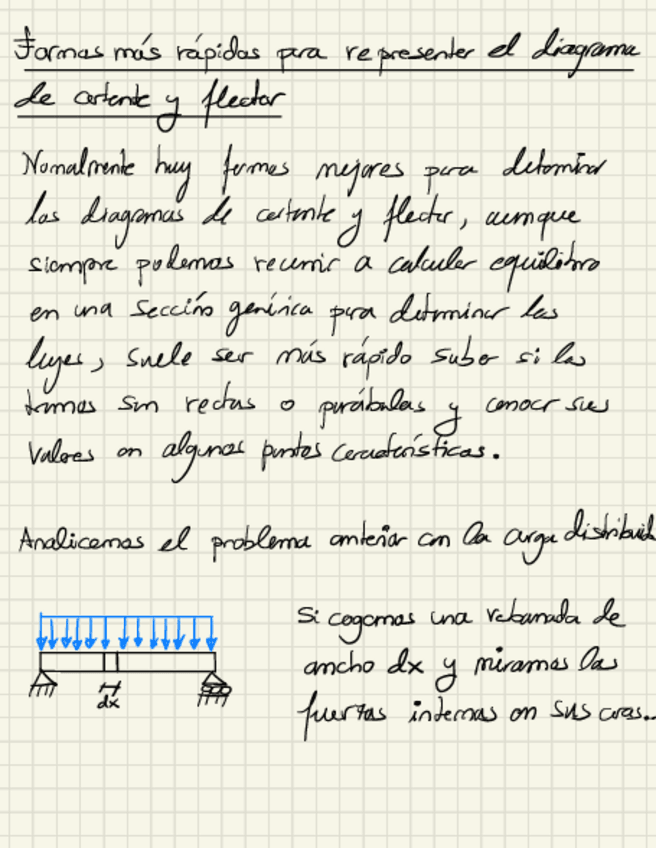 Formas más rápidas para representar el diagrama
de cortante y flector
Normalmente hay formas mejores para determinar
los diagramas de cortante y flector, aunque
siempre podemos recurrir a calcular equilibrio
en una sección genérica para determinar las
leyes, suele ser más rápido saber si los
tramos son rectas o parábolas y conocer sus
valores en algunos puntos característicos.
Analicemos el problema anterior con la carga distribuid
Si cogemos una rebanada de
ancho dx y miramos las
fuerzas internas en sus caras...
dx